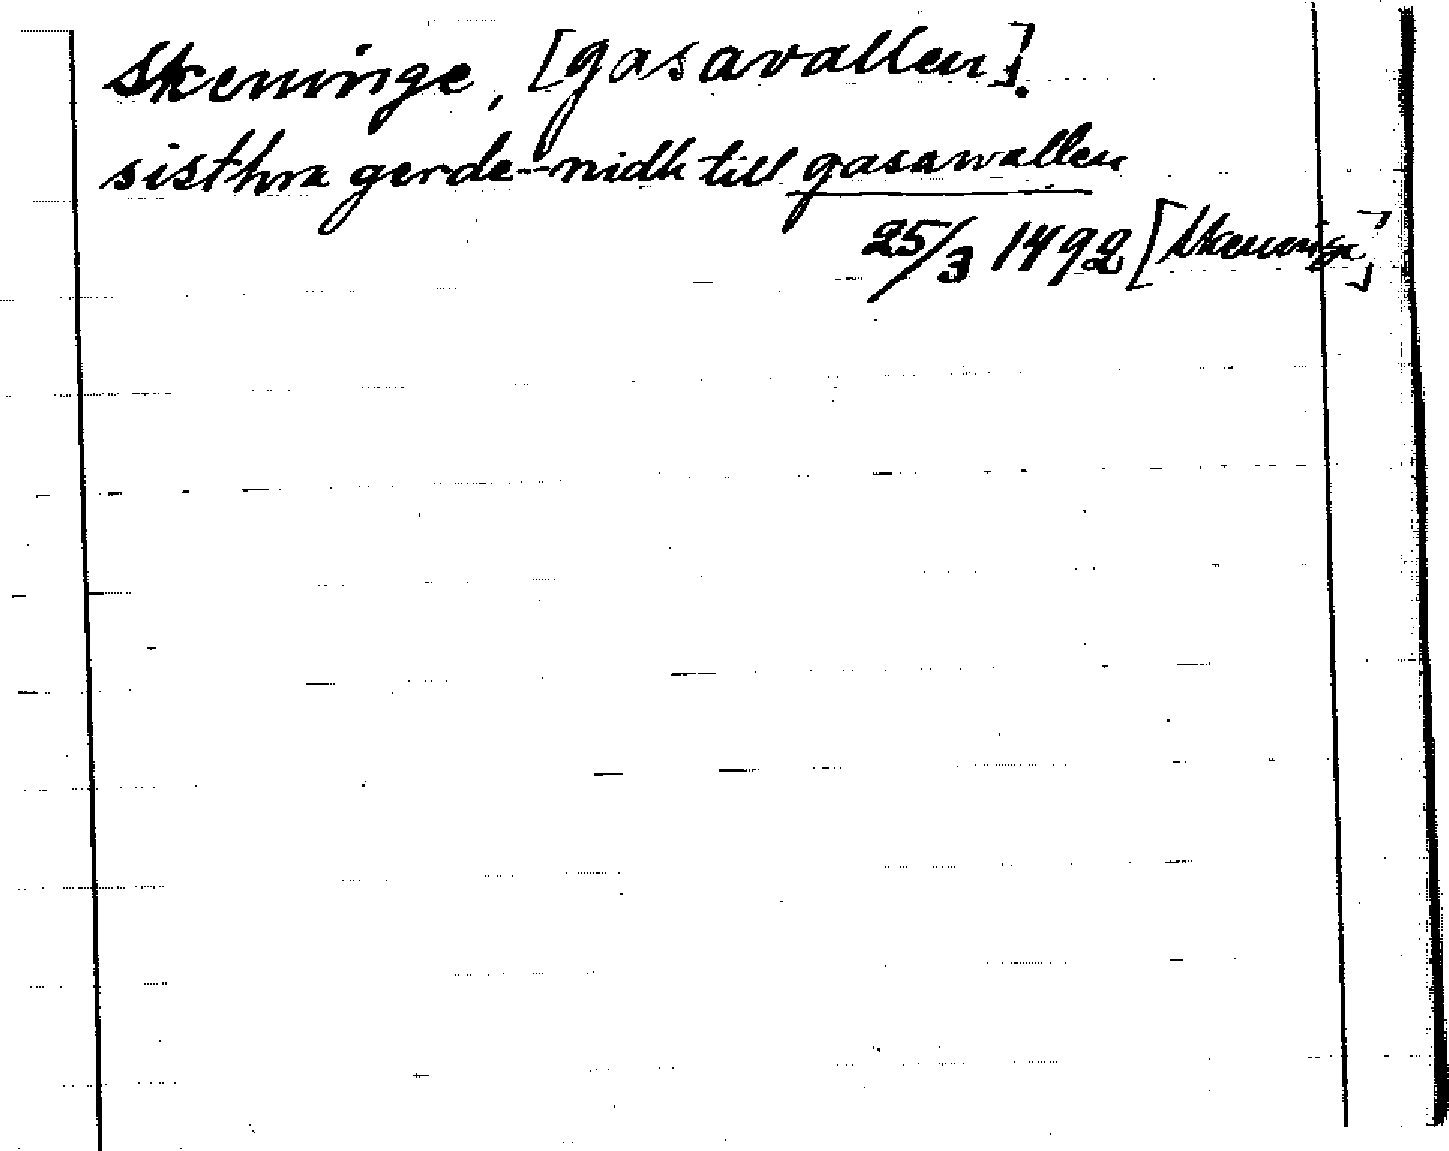 Skeninge, [gasavallen].
sisthra gerde--nidh till gasawallen
25/3 1492 [Skeninge]